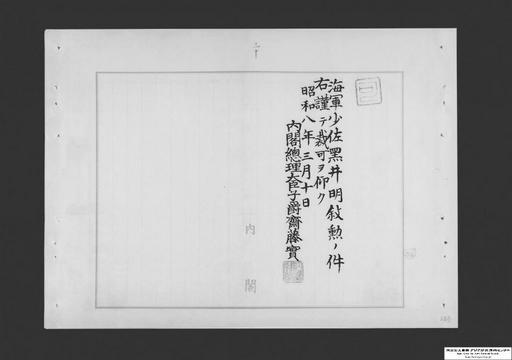 海軍少佐黑井明敍勲ノ件
右謹テ裁可ヲ仰ク
昭和八年三月十日
內閣總理大臣子爵齋藤實
內閣